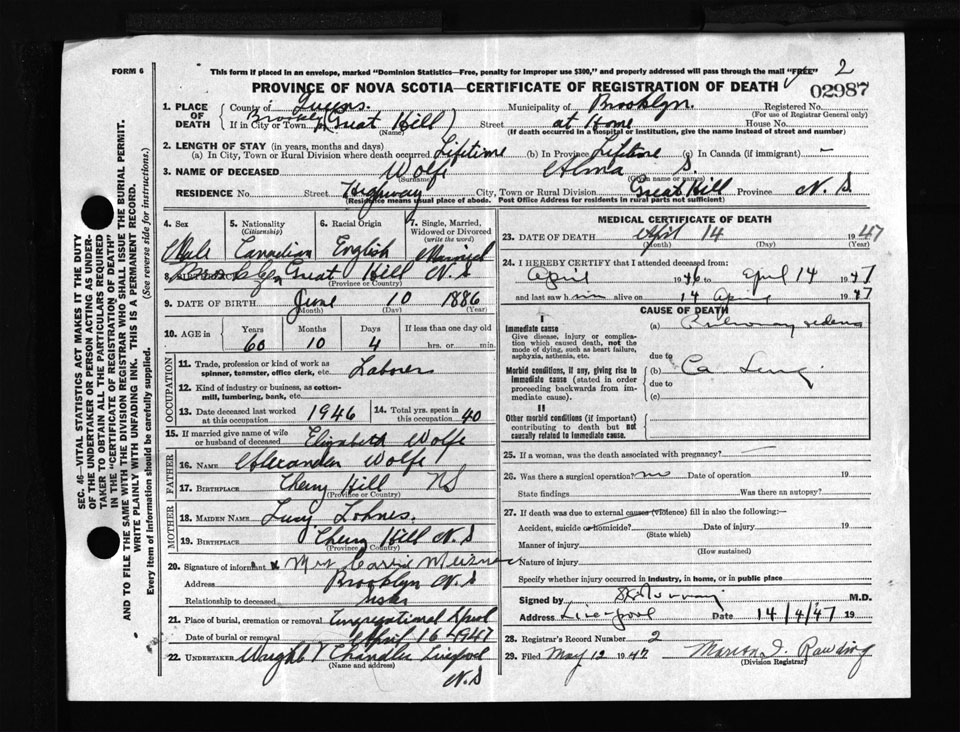 FORM 6
This form if placed in an envelope, marked "Dominion Statistics—Free, penalty for improper use $300," and properly addressed will pass through the mail "FREE" 2
PROVINCE OF NOVA SCOTIA—CERTIFICATE OF REGISTRATION OF DEATH
02987
SEC. 46—VITAL STATISTICS ACT MAKES IT THE DUTY
OF THE UNDERTAKER OR PERSON ACTING AS UNDER-
TAKER TO OBTAIN ALL THE PARTICULARS REQUIRED
IN THE "CERTIFICATE OF REGISTRATION OF DEATH"
AND TO FILE THE SAME WITH THE DIVISION REGISTRAR WHO SHALL ISSUE THE BURIAL PERMIT.
WRITE PLAINLY WITH UNFADING INK. THIS IS A PERMANENT RECORD.
Every item of information should be carefully supplied. (See reverse side for instructions.)
1. PLACE OF DEATH
County of Queens. Municipality of Brooklyn. Registered No.
(For use of Registrar General only)
If in City or Town Brooklyn (Great Hill) Street at Home House No.
(Name) (If death occurred in a hospital or institution, give the name instead of street and number)
2. LENGTH OF STAY (in years, months and days)
(a) In City, Town or Rural Division where death occurred Lifetime (b) In Province Lifetime (c) In Canada (if immigrant) –
3. NAME OF DECEASED Wolfe Alma S.
(Surname) (Given name or names)
RESIDENCE No. Street Highway City, Town or Rural Division Great Hill Province N. S
(Residence means usual place of abode. Post Office Address for residents in rural parts not sufficient)
4. Sex
Male
5. Nationality
(Citizenship)
Canadian
6. Racial Origin
English
7. Single, Married,
Widowed or Divorced
(write the word)
Married
8. Great Hill N. S
(Province or Country)
9. DATE OF BIRTH June 10 1886
(Month) (Day) (Year)
10. AGE in Years Months Days If less than one day old
60 10 4 hrs. or min.
OCCUPATION
11. Trade, profession or kind of work as
spinner, teamster, office clerk, etc. Laborer
12. Kind of industry or business, as cotton-
mill, lumbering, bank, etc.
13. Date deceased last worked
at this occupation 1946
14. Total yrs. spent in
this occupation 40
15. If married give name of wife
or husband of deceased Elizabeth Wolfe
FATHER
16. NAME Alexander Wolfe
17. BIRTHPLACE Cherry Hill NS
(Province or Country)
MOTHER
18. MAIDEN NAME Lucy Lohnes.
19. BIRTHPLACE Cherry Hill N. S
(Province or Country)
20. Signature of informant x Mrs Carrie
Address Brooklyn N. S
Relationship to deceased Sister
21. Place of burial, cremation or removal Congregational
Date of burial or removal April 16 1947
22. UNDERTAKER Chandler Liverpool
(Name and address) N. S
MEDICAL CERTIFICATE OF DEATH
23. DATE OF DEATH April 14 1947
(Month) (Day) (Year)
24. I HEREBY CERTIFY that I attended deceased from:
April 1946 to April 14 1947
and last saw him alive on 14 April 1947
CAUSE OF DEATH
I
Immediate cause
Give disease, injury or complica-
tion which caused death, not the
mode of dying, such as heart failure,
asphyxia, asthenia, etc.
(a) Pulmonary oedema
due to
Morbid conditions, if any, giving rise to
immediate cause (stated in order
proceeding backwards from im-
mediate cause).
(b) Ca Lung
due to
(c)
II
Other morbid conditions (if important)
contributing to death but not
causally related to immediate cause.
25. If a woman, was the death associated with pregnancy?
26. Was there a surgical operation? no Date of operation 19
State findings Was there an autopsy?
27. If death was due to external causes (violence) fill in also the following:—
Accident, suicide or homicide? Date of injury 19
(State which)
Manner of injury
(How sustained)
Nature of injury
Specify whether injury occurred in industry, in home, or in public place
Signed by M.D.
Address Liverpool Date 14/4/47 19
28. Registrar's Record Number 2
29. Filed May 12 1947 Rawding
(Division Registrar)